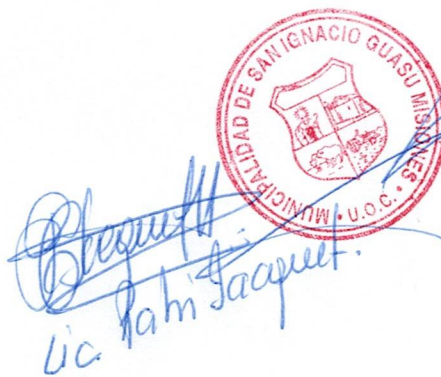 MUNICIPALIDAD DE SAN IGNACIO GUASU MISIONES
U.O.C.
Lic. Pahi Jacquet.